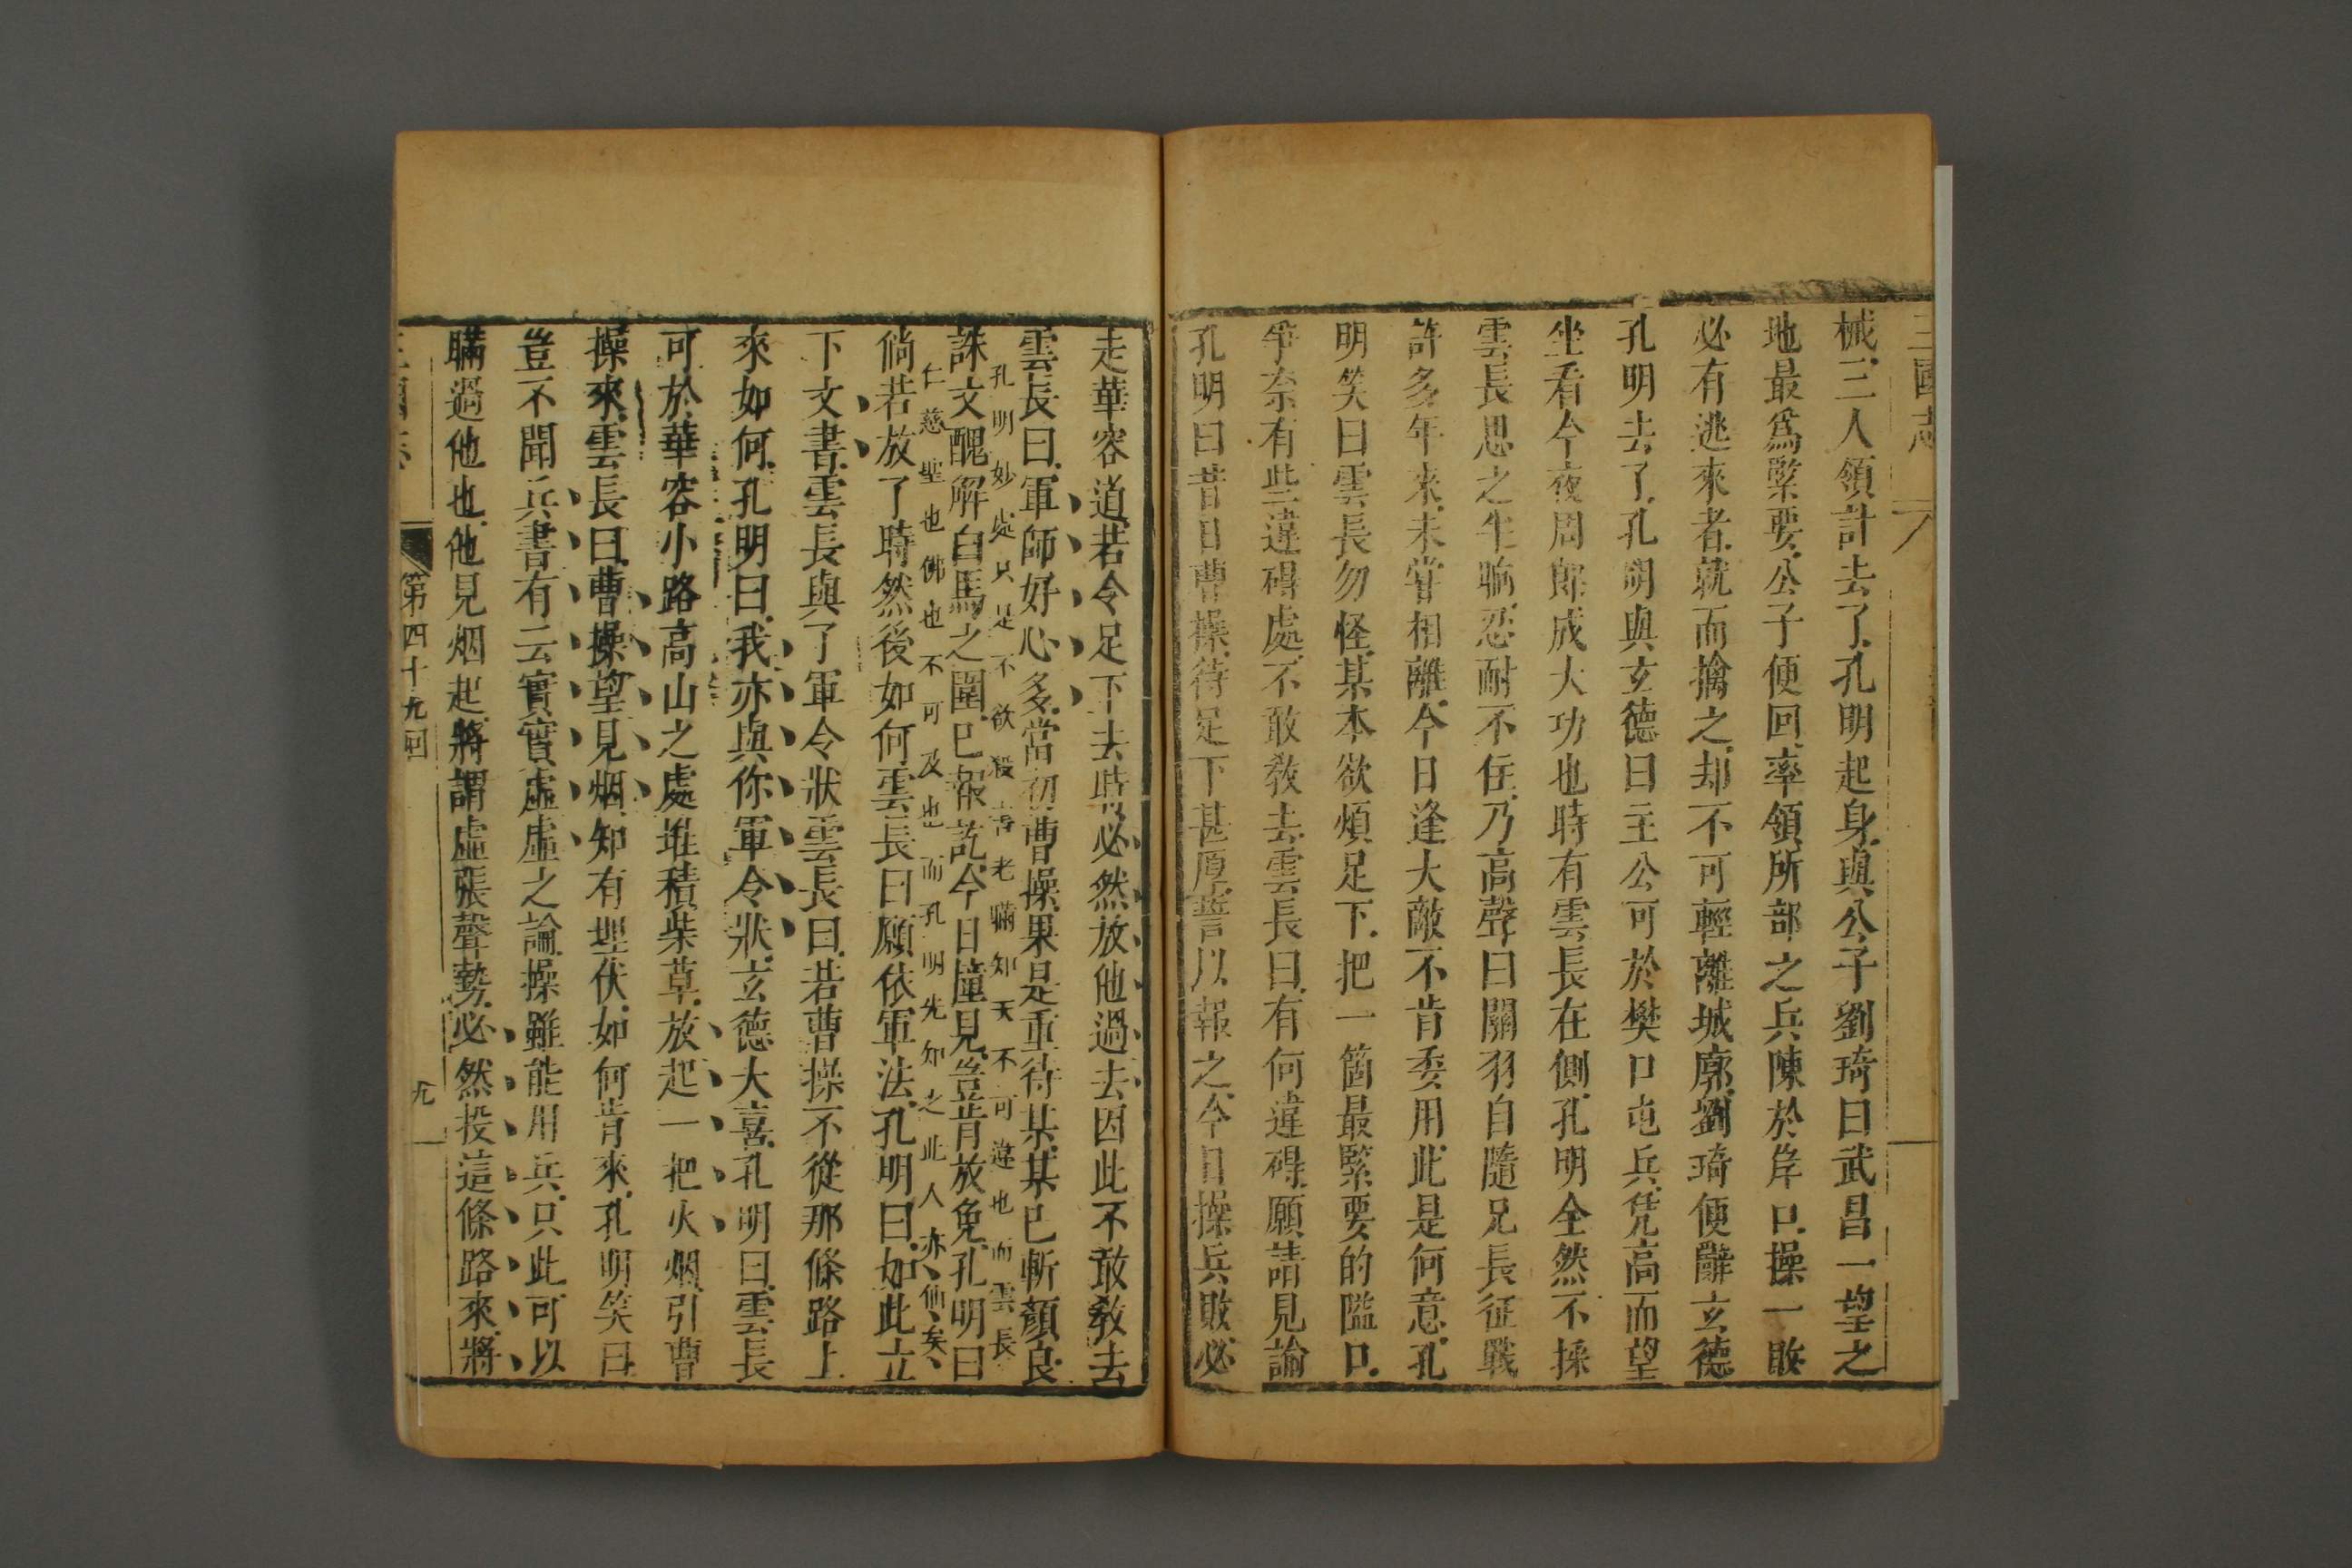 三國志
械三人領計去了孔明起身與公子劉琦曰武昌一望之
地最爲緊要公子便回率領所部之兵陳於岸口操一敗
必有逃來者就而擒之却不可輕離城廓劉琦便辭玄德
孔明去了孔明與玄德曰主公可於樊口屯兵凭高而望
坐看今夜周郎成大功也時有雲長在側孔明全然不採
雲長思之半晌忍耐不住乃高聲曰關羽自隨兄長征戰
許多年來未嘗相離今日逢大敵不肯委用此是何意孔
明笑曰雲長勿怪某本欲煩足下把一箇最緊要的隘口
爭奈有些違碍處不敢敎去雲長曰有何違碍願請見諭
孔明曰昔日曹操待足下甚厚誓以報之今日操兵敗必
走華容道若令足下去時必然放他過去因此不敢敎去
雲長曰軍師好心多當初曹操果是重待某某已斬顏良
孔明妙處只是不欲殺害老瞞知天不可違也而雲長
誅文醜解白馬之圍已報訖今日撞見豈肯放免孔明曰
仁慈聖也佛也不可及也而孔明先知之此人亦仙矣
倘若放了時然後如何雲長曰願依軍法孔明曰如此立
下文書雲長與了軍令狀雲長曰若曹操不從那條路上
來如何孔明曰我亦與你軍令狀玄德大喜孔明曰雲長
可於華容小路高山之處堆積柴草放起一把火烟引曹
操來雲長曰曹操望見烟知有埋伏如何肯來孔明笑曰
豈不聞兵書有云實實虛虛之論操雖能用兵只此可以
瞞過他也他見烟起將謂虛張聲勢必然投這條路來將
第四十九回